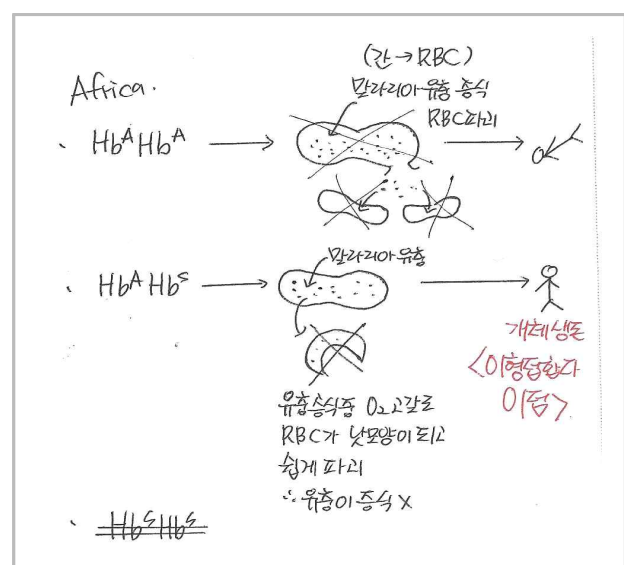 (간→RBC)
Africa.
말라리아 유충 증식
RBC 파괴
· Hb^A Hb^A
말라리아 유충
· Hb^A Hb^s
개체생존
<이형접합자
이점>
유충증식중 O₂고갈로
RBC가 낫모양이 되고
쉽게 파괴
∴ 유충이 증식 X
· Hb^s Hb^s